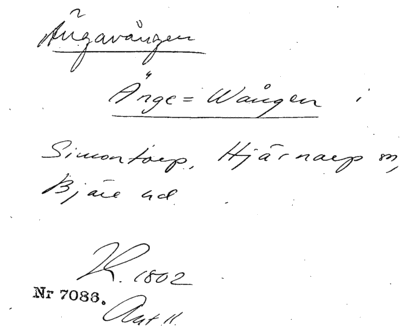 Ängavången
Änge=Wången i
Simontorp, Hjärnarp sn,
Bjäre hd
K. 1802
Nr 7086.
Akt 11.